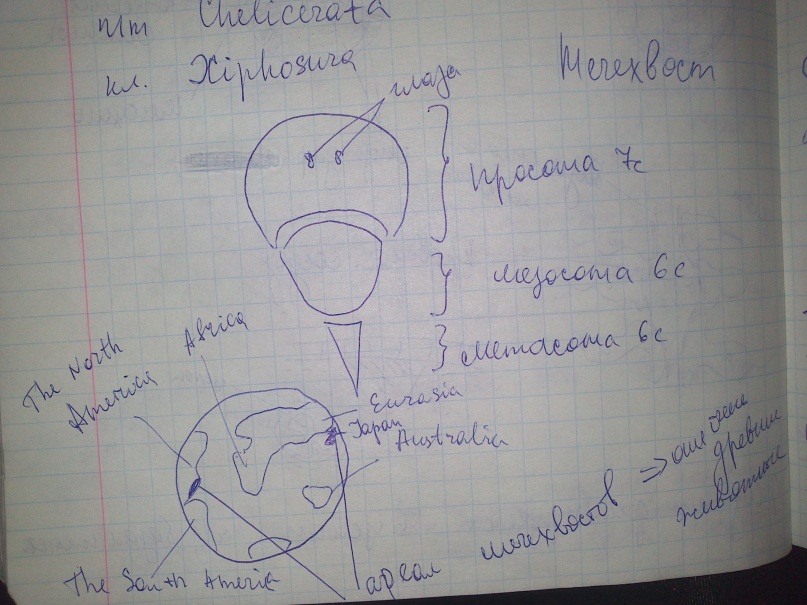 Пт Chelicerata
кл. Xiphosura
Мечехвост
глаза
просома 7с
мезосома 6с
метасома 6с
The North
America
Africa
Eurasia
Japan
Australia
The South America
ареал мечехвостов ⇒ они очень
древние
животные